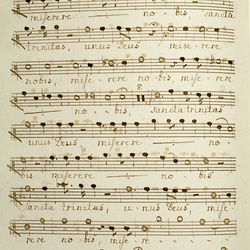 miserere no - bis, sancta
trinitas, unus Deus mise - rere
nobis, mise - rere no - bis, mise - rere
no - bis, sancta trinitas
unus Deus miserere no -
bis miserere no - bis
sancta trinitas, u - nus Deus, mise -
rere no - bis, mise - re - re no -